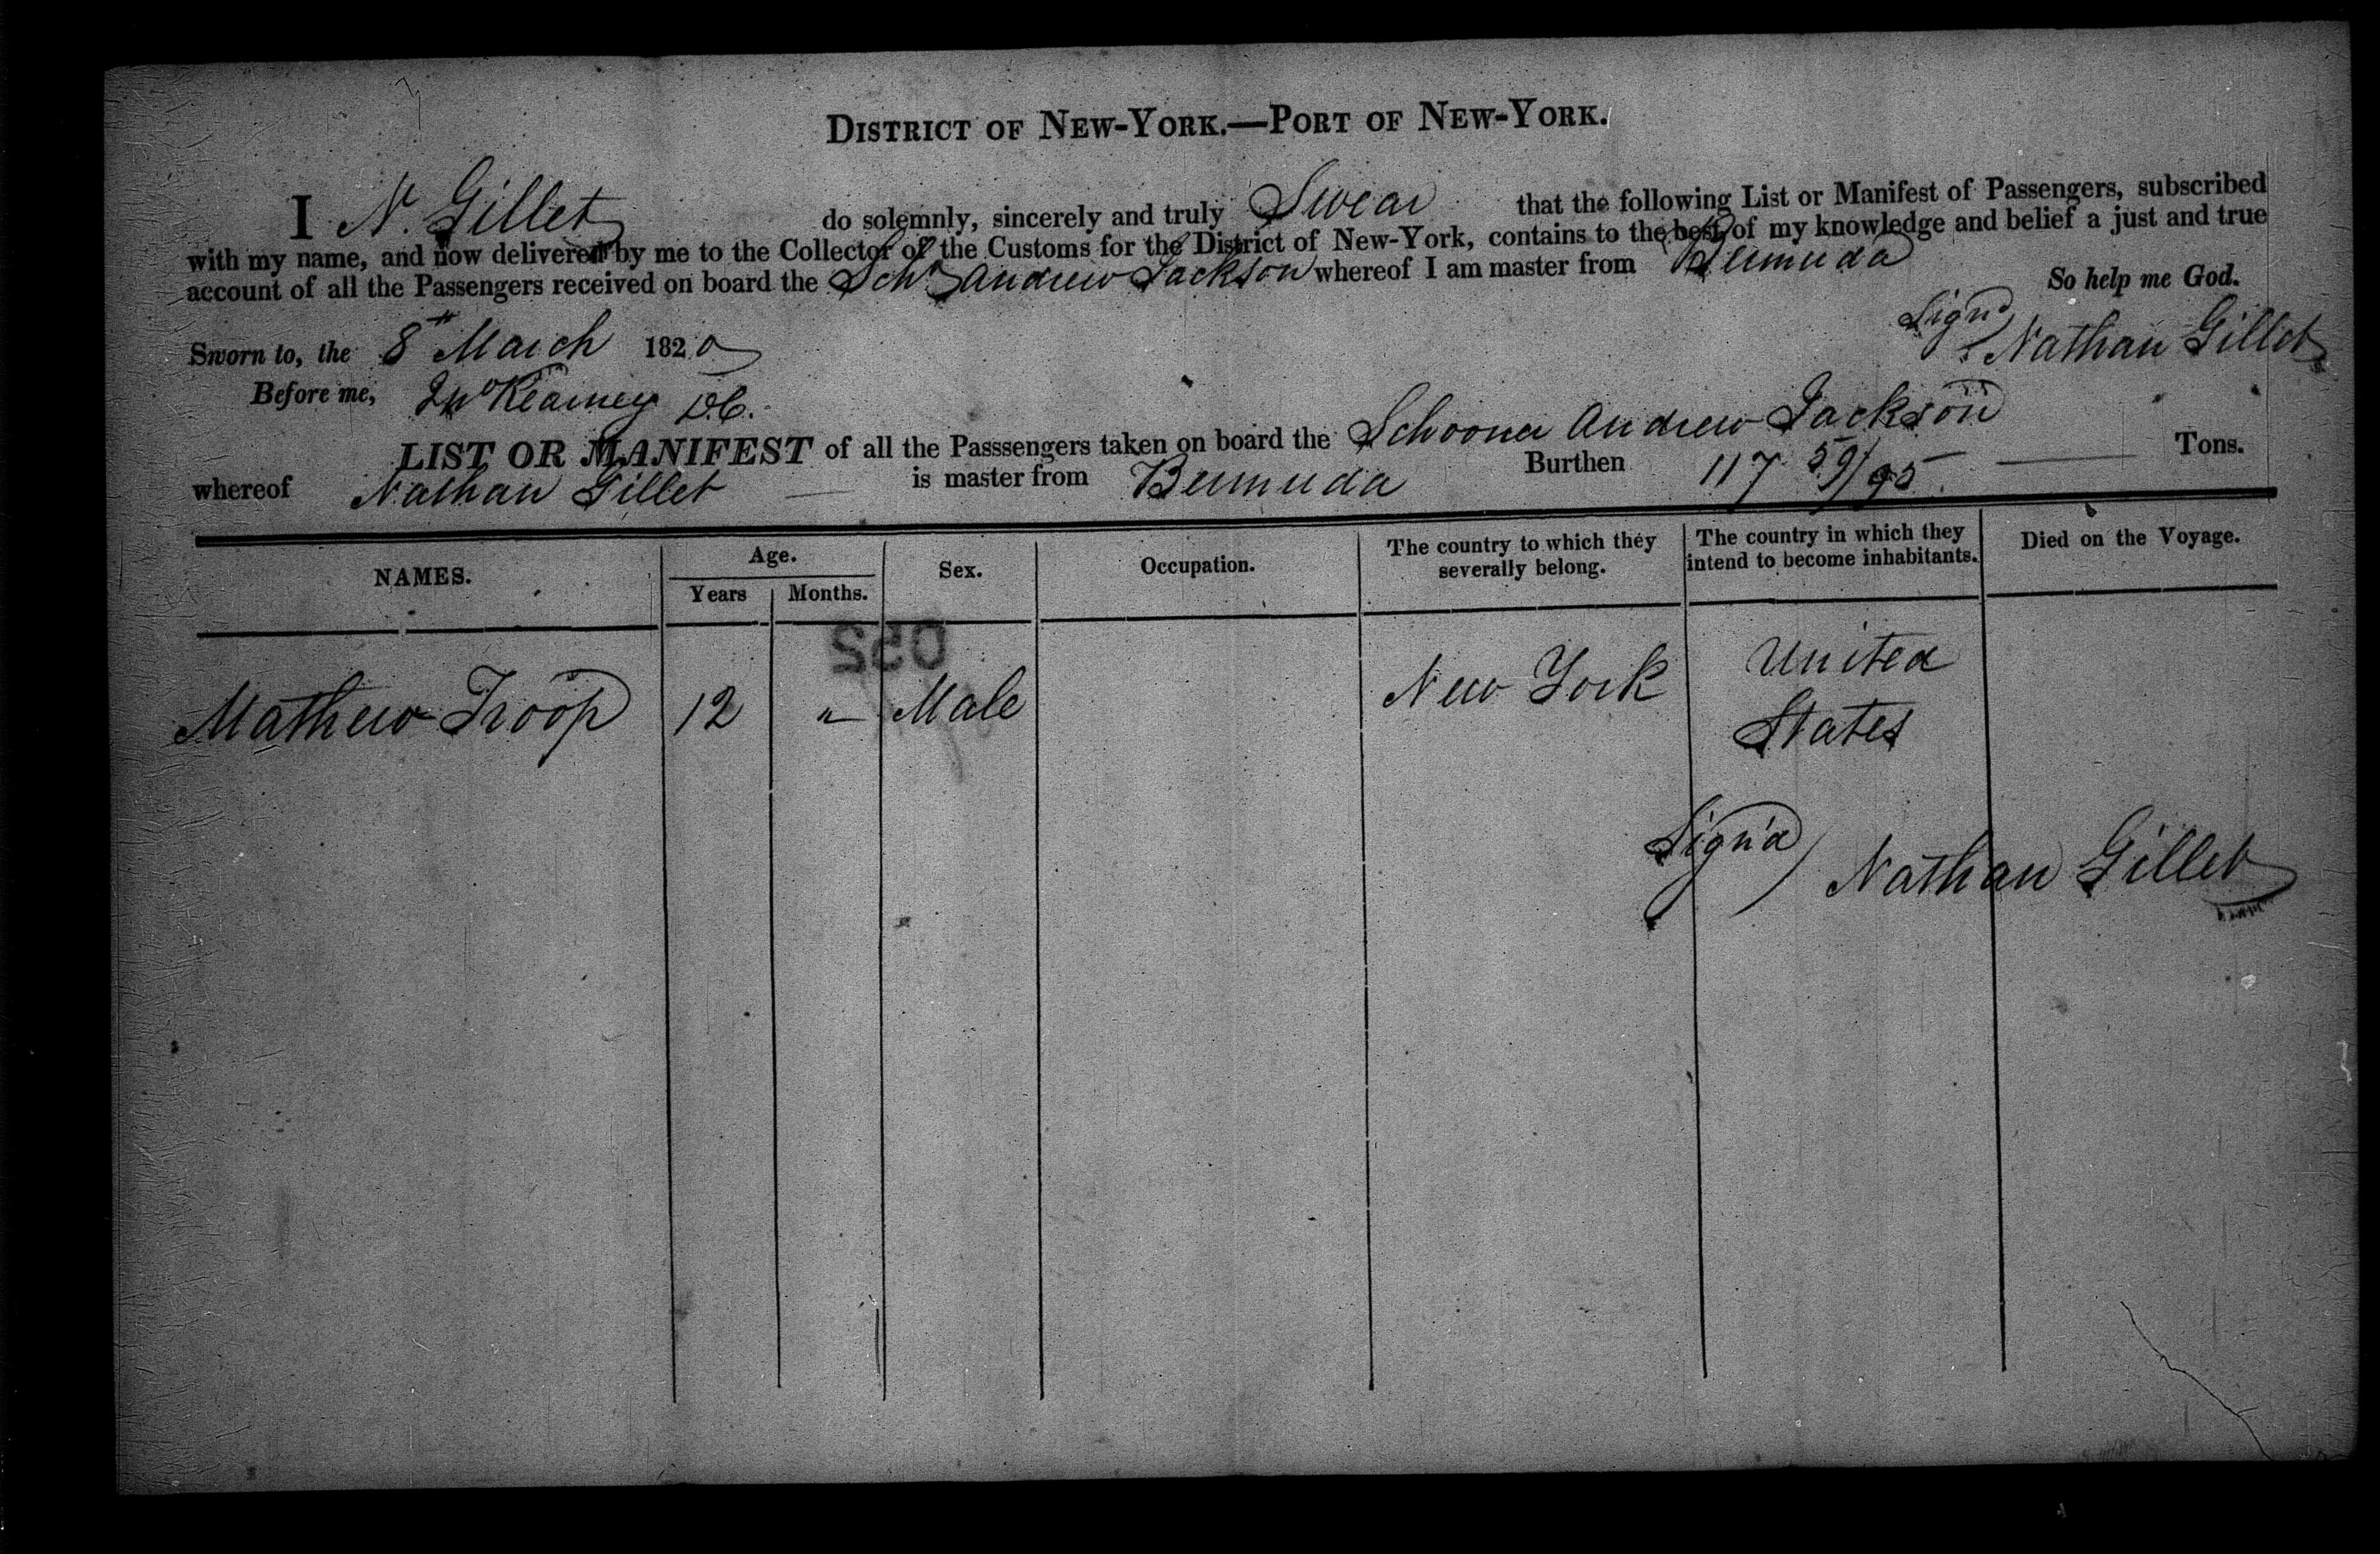 DISTRICT OF NEW-YORK.—PORT OF NEW-YORK.
I N. Gillet do solemnly, sincerely and truly Swear that the following List or Manifest of Passengers, subscribed
with my name, and now delivered by me to the Collector of the Customs for the District of New-York, contains to the best of my knowledge and belief a just and true
account of all the Passengers received on board the Schr Andrew Jackson whereof I am master from Bermuda
So help me God.
Sworn to, the 8th March 1820
Signd Nathan Gillet
Before me, Kearney D.C.
LIST OR MANIFEST of all the Passsengers taken on board the Schooner Andrew Jackson
whereof Nathan Gillet is master from Bermuda Burthen 117 59/95 Tons.
NAMES. Age. Years Months. Sex. Occupation. The country to which they severally belong. The country in which they intend to become inhabitants. Died on the Voyage.
Mathew Troop 12 " Male New York United States
Sign'd Nathan Gillet